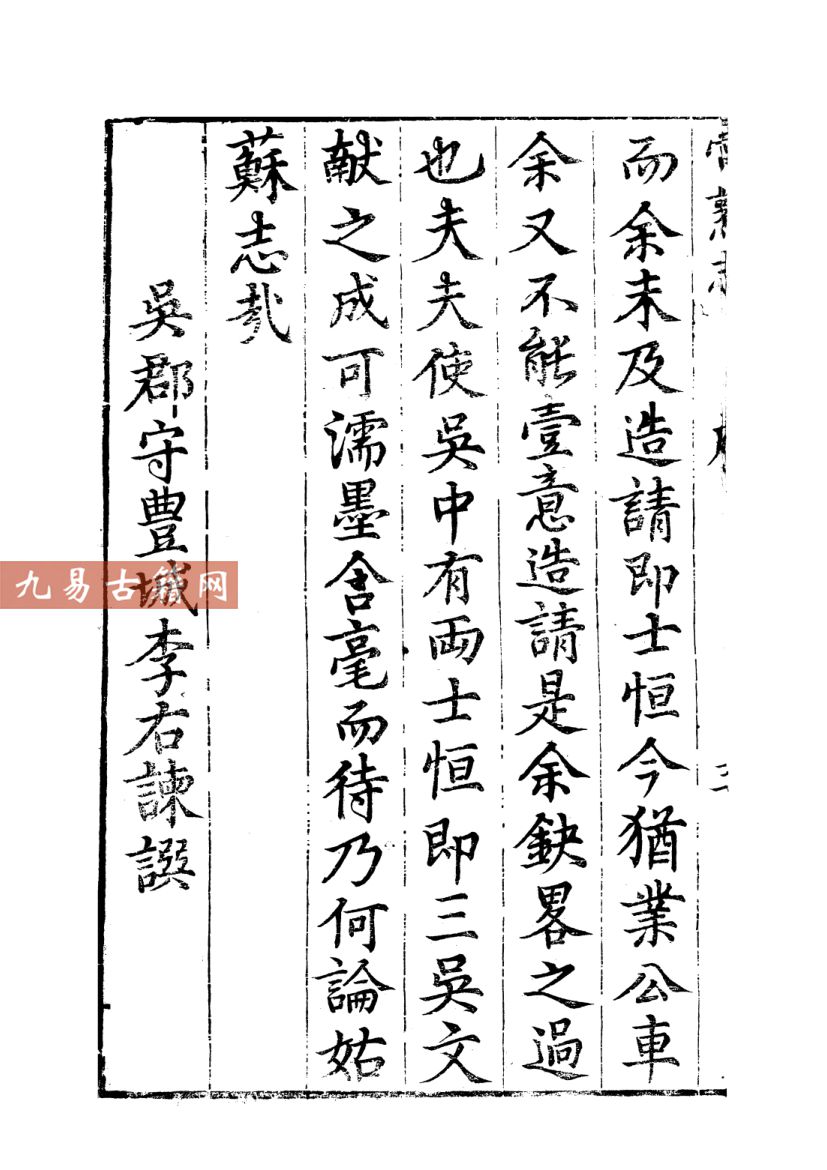 常熟志
序
三
而余未及造請即士恒今猶業公車
余又不能壹意造請是余鈌畧之過
也夫夫使吳中有両士恒即三吳文
献之成可濡墨含毫而待乃何論姑
蘇志㢤
吳郡守豊城李右諫譔
九易古籍网